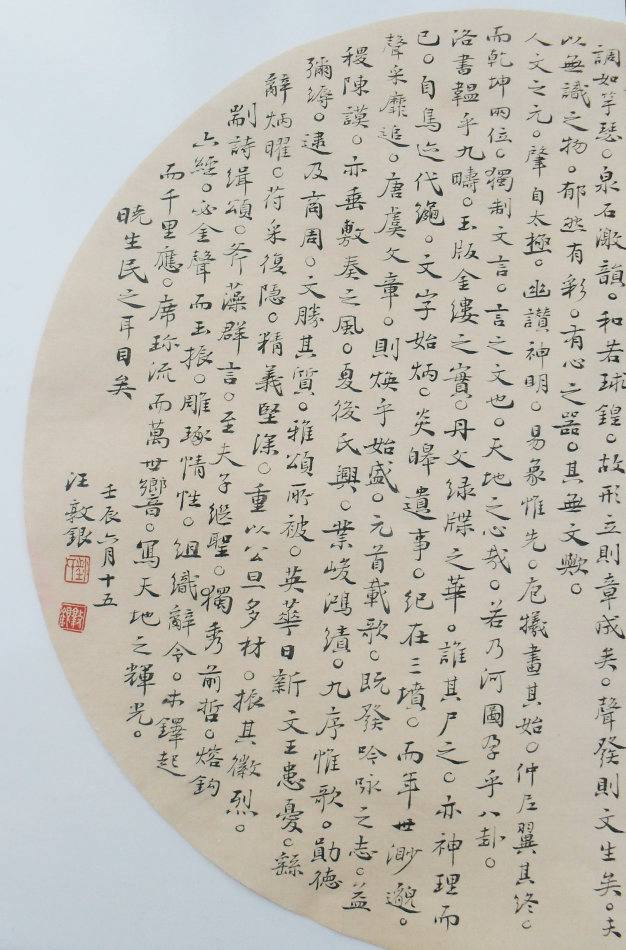 調如竽瑟。泉石激韻。和若球鍠。故形立則章成矣。聲發則文生矣。夫
以無識之物。郁然有彩。有心之器。其無文歟。
人文之元。肇自太極。幽讚神明。易象惟先。庖犧畫其始。仲尼翼其終。
而乾坤兩位。獨制文言。言之文也。天地之心哉。若乃河圖孕乎八卦。
洛書韞乎九疇。玉版金縷之實。丹文綠牒之華。誰其尸之。亦神理而
已。自鳥迹代繩。文字始炳。炎皞遺事。紀在三墳。而年世渺邈。
聲采靡追。唐虞文章。則煥乎始盛。元首載歌。既發吟詠之志。益
稷陳謨。亦垂敷奏之風。夏後氏興。業峻鴻績。九序惟歌。勛德
彌縟。逮及商周。文勝其質。雅頌所被。英華日新 文王患憂。繇
辭炳曜。符采復隱。精義堅深。重以公旦多材。振其徽烈。
剬詩緝頌。斧藻群言。至夫子繼聖。獨秀前哲。熔鈞
六經。必金聲而玉振。雕琢情性。組織辭令。木鐸起
而千里應。席珍流而萬世響。寫天地之輝光。
曉生民之耳目矣
壬辰六月十五
汪敦銀